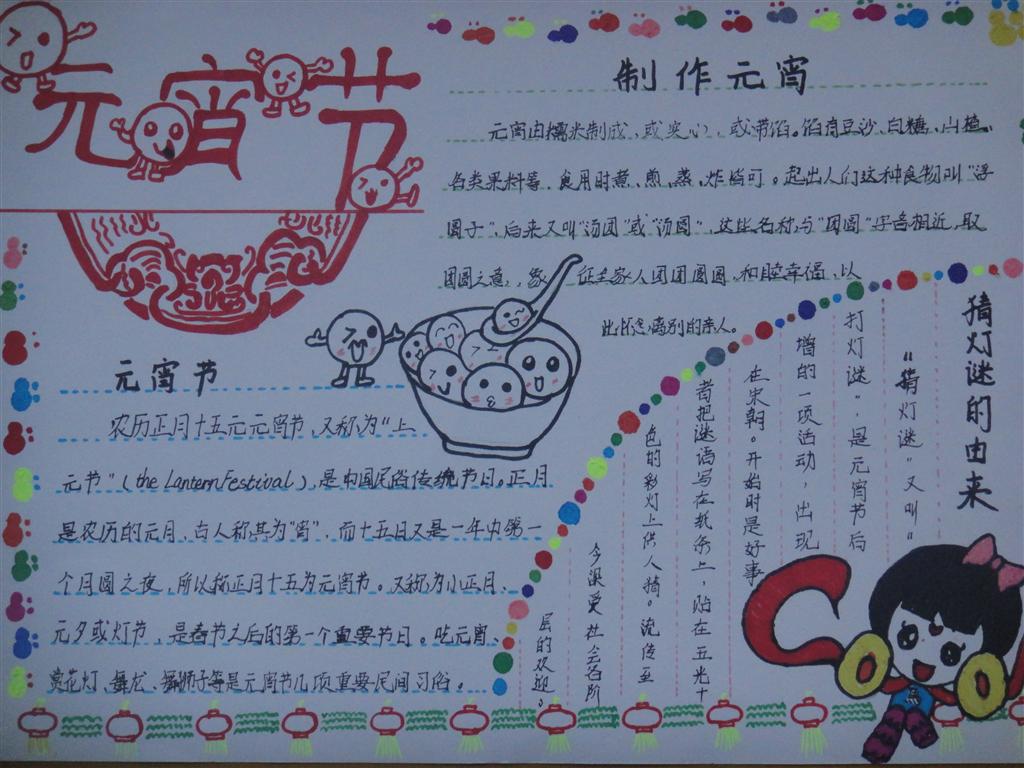 元宵节
制作元宵
元宵由糯米制成，或实心，或带馅。馅有豆沙、白糖、山楂、
各类果料等，食用时煮、煎、蒸、炸皆可。起出人们这种食物叫“浮
圆子”，后来又叫“汤团”或“汤圆”，这些名称与“团圆”字音相近，取
团圆之意，象征全家人团团圆圆，和睦幸福，以
此怀念离别的亲人。
元宵节
农历正月十五元元宵节，又称为“上
元节”（the Lantern Festival），是中国民俗传统节日。正月
是农历的元月，古人称其为“宵”，而十五日又是一年中第一
个月圆之夜，所以称正月十五为元宵节。又称为小正月、
元夕或灯节，是春节之后的第一个重要节日。吃元宵、
赏花灯、舞龙、舞狮子等是元宵节几项重要民间习俗。
猜灯谜的由来
“猜灯谜”又叫“
打灯谜”，是元宵节后
增的一项活动，出现
在宋朝。开始时是好事
者把谜语写在纸条上，贴在五光十
色的彩灯上供人猜。流传至
今深受社会各阶
层的欢迎。